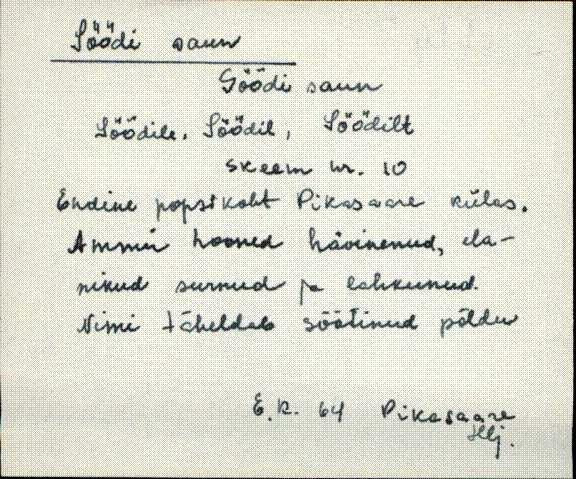 Söödi saun
Söödi saun
Söödile, Söödil, Söödilt
skeem nr. 10
Endine popsikoht Pikasaare külas.
Ammu hooned hävinenud, ela-
nikud surnud ja lahkunud.
Nimi täheldab söötinud põldu
E.K. 64 Pikasaare
Hlj.